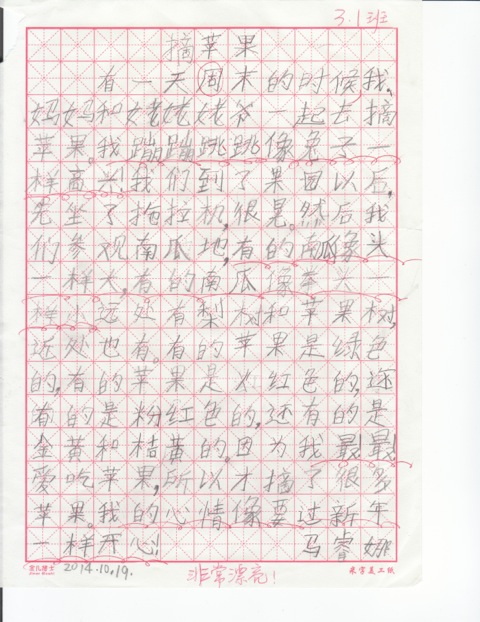 3.1班
摘苹果
有一天周末的时候我,
妈妈和姥姥姥爷一起去摘
苹果。我蹦蹦跳跳像兔子一
样高兴!我们到了果园以后,
先坐了拖拉机,很晃。然后我
们参观南瓜地,有的南瓜像头
一样大,有的南瓜像拳头一
样小远处有梨树和苹果树,
近处也有。有的苹果是绿色
的,有的苹果是火红色的,还
有的是粉红色的,还有的是
金黄和桔黄的。因为我最!最!
爱吃苹果,所以才摘了很多
苹果。我的心情像要过新年
一样开心! 马睿娜
2014.10.19. 非常漂亮! 米字美工纸